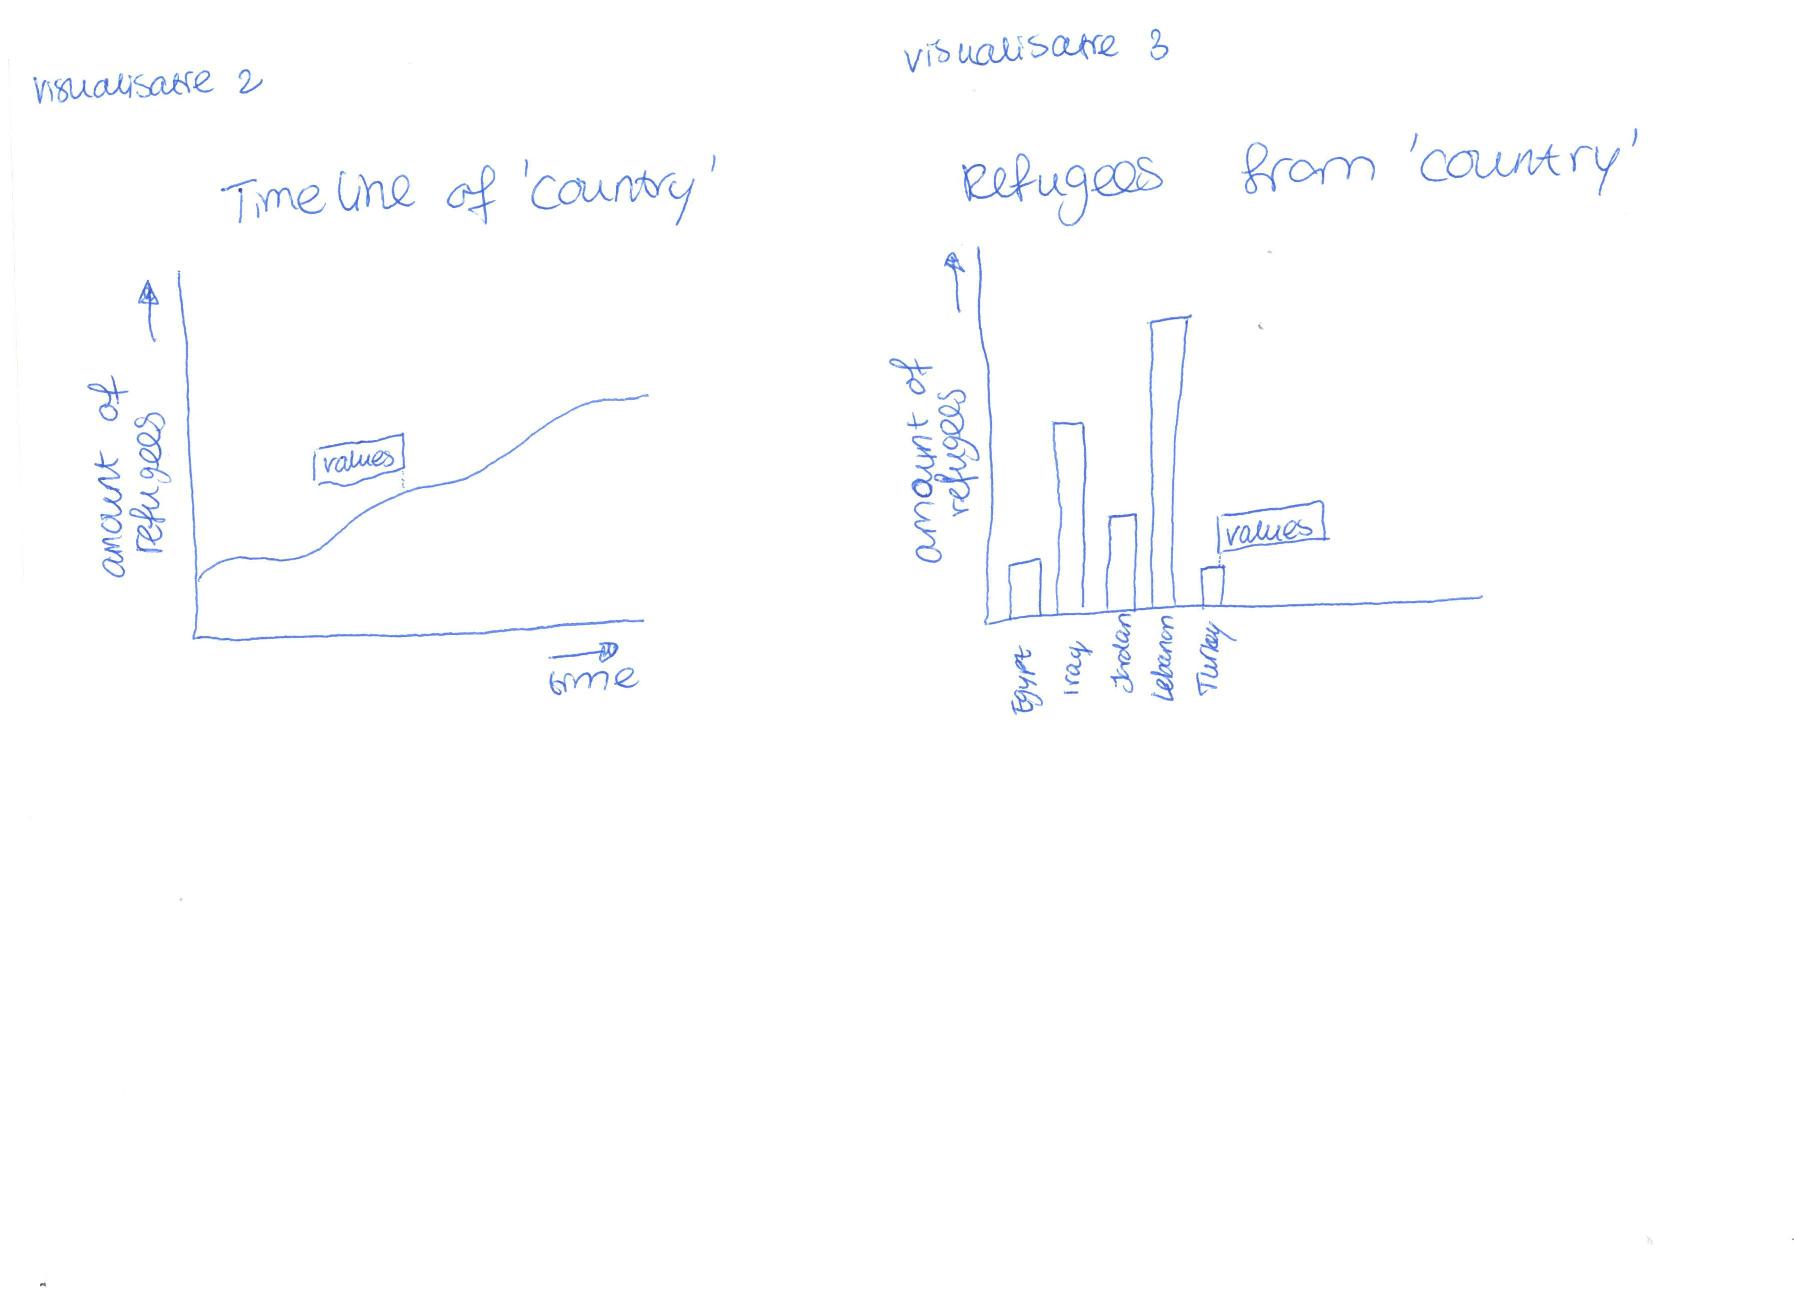 visualisatie 2
Timeline of 'country'
amount of
refugees
values
time
visualisatie 3
Refugees from 'country'
amount of
refugees
values
Egypt
Iraq
Jordan
Lebanon
Turkey